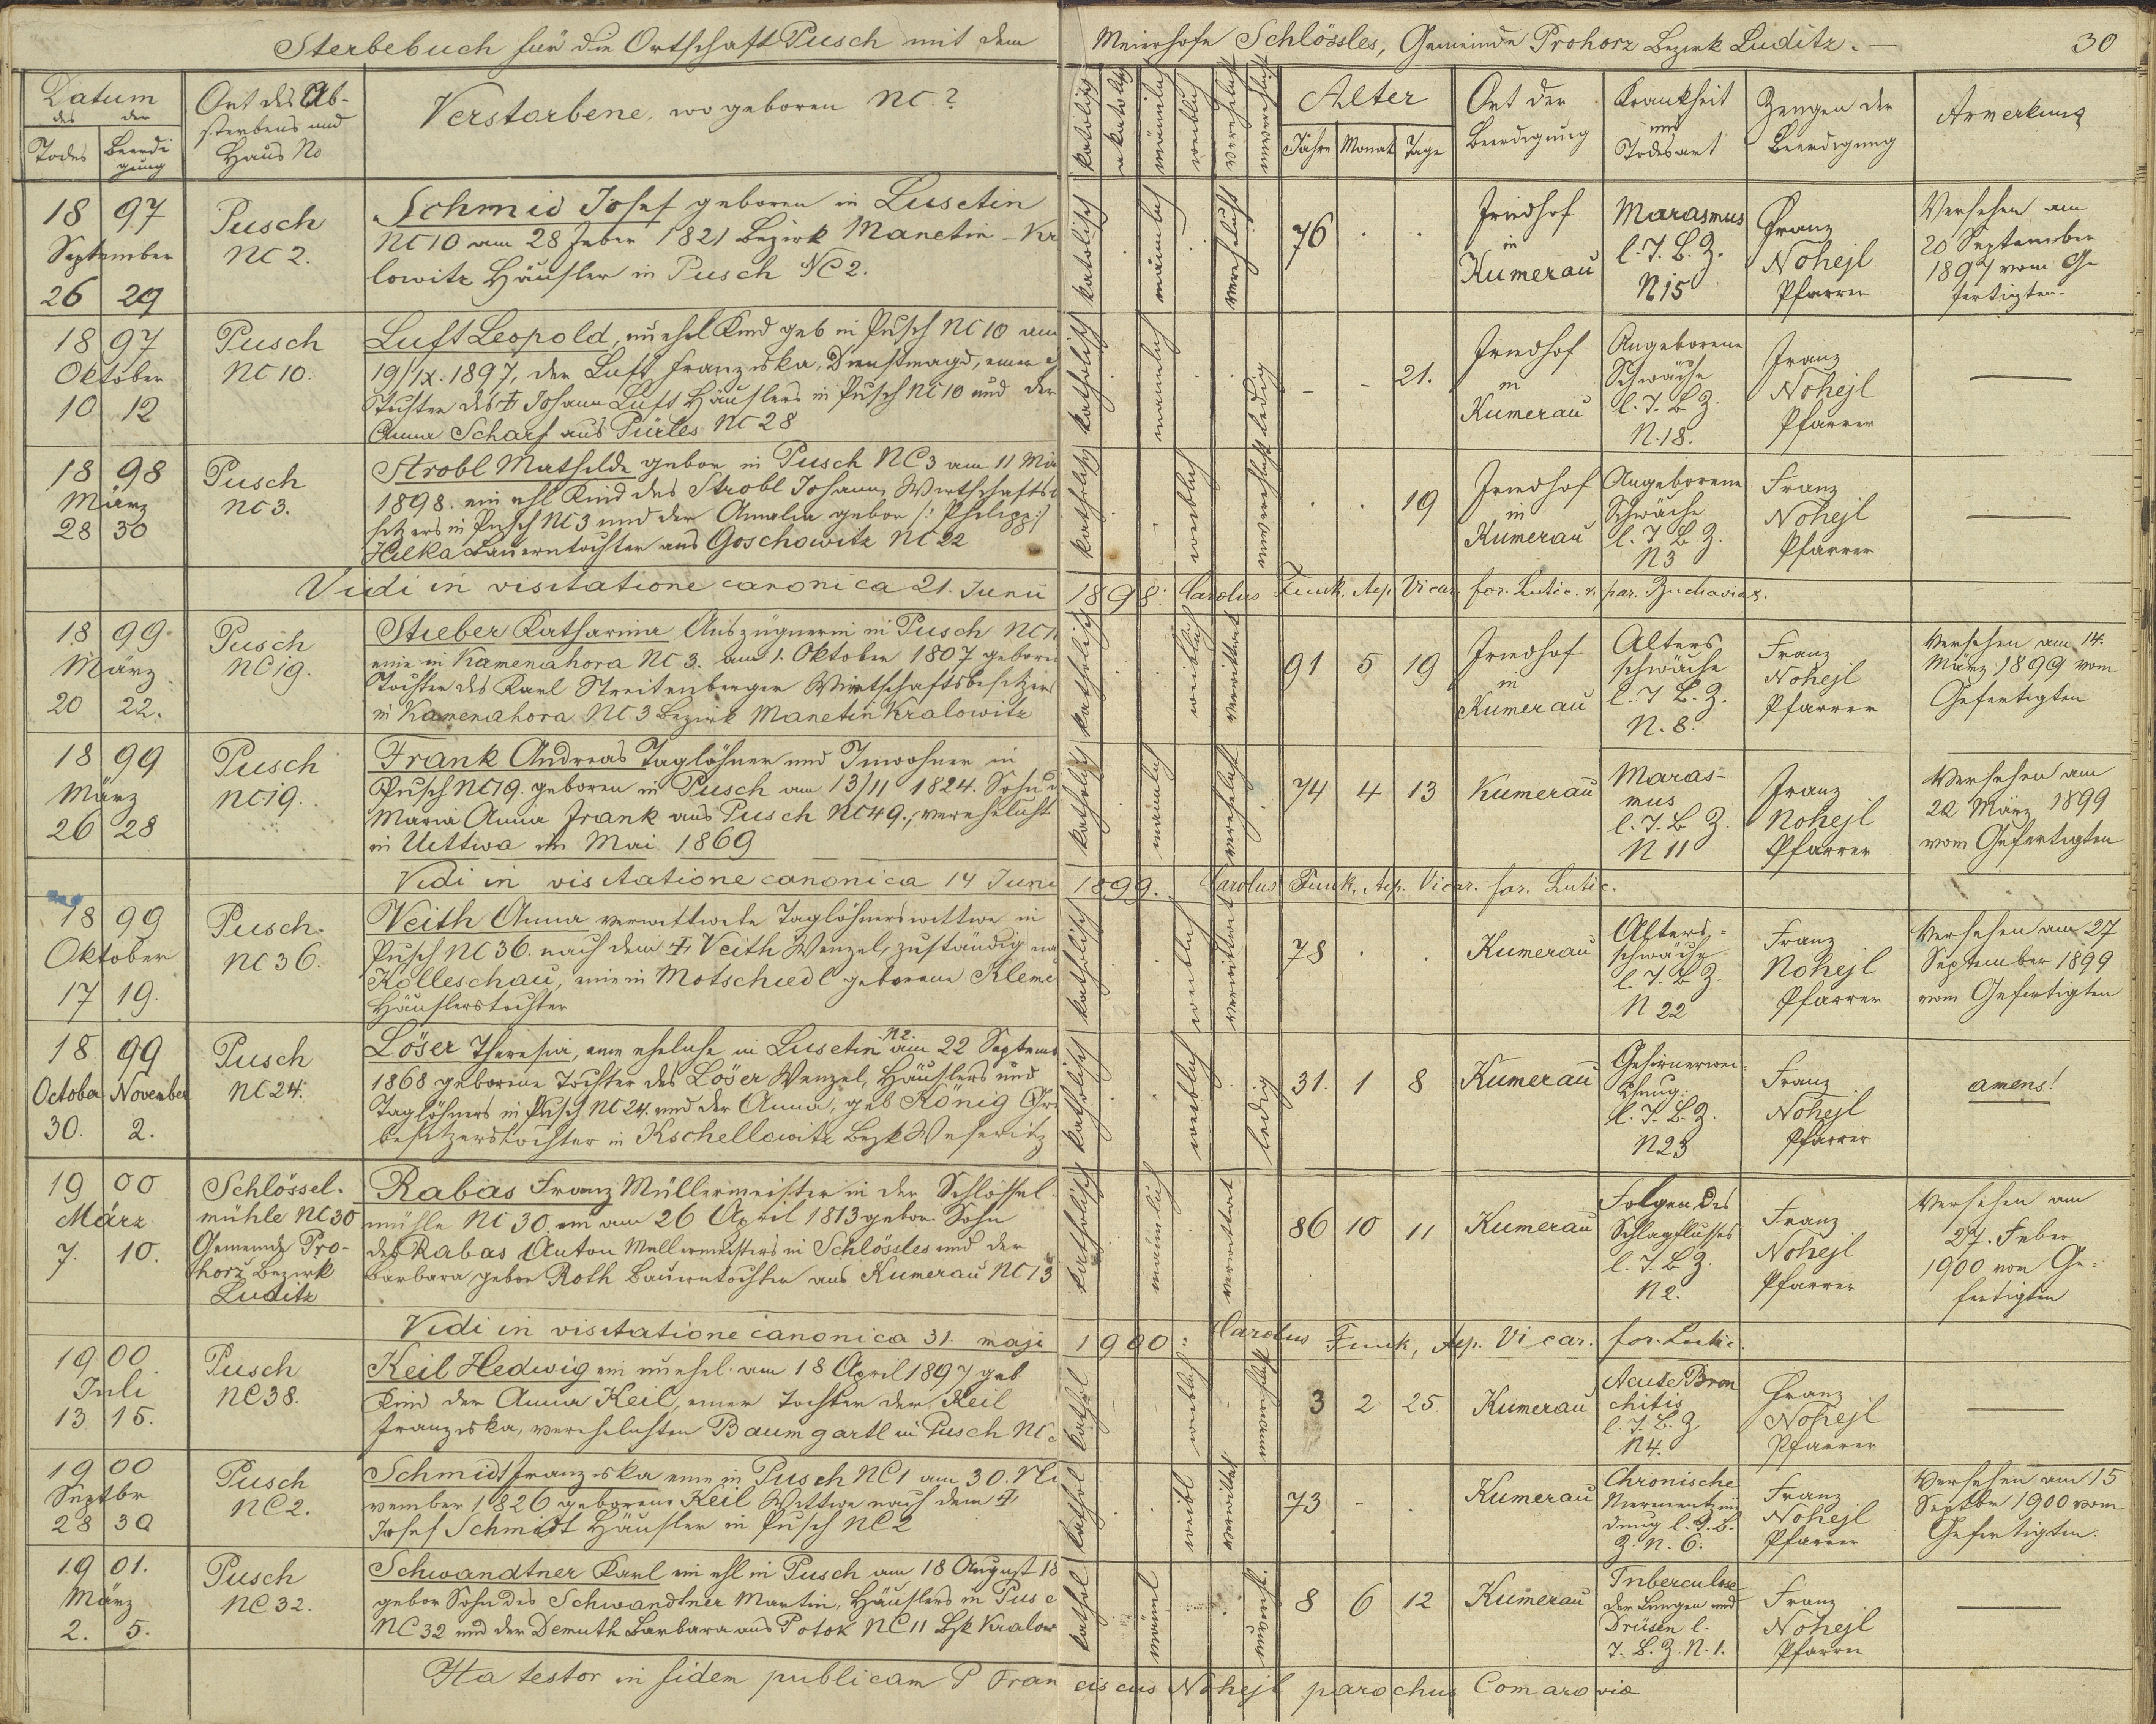 Sterbebuch für die Ortschaft Pusch mit dem Meierhofe Schlössles, Gemeinde Prohorz Bezirk Luditz. 30
Datum des der
Todes Beerdi
gung
Ort des Ab-
sterbens und
Haus No
Verstorbene, wo geboren NC?
katolisch
akatolisch
männlich
weiblich
verehelicht
unverehelicht
Alter
Jahre Monat Tage
Ort der
Beerdigung
Krankheit
und
Todesart
Zeugen der
Beerdigung
Anmerkung
18 97
September
26 29
Pusch
NC 2.
Schmid Josef geboren in Lusetin
NC 10 am 28 Feber 1821 Bezirk Manetin - Kr
lowitz Häusler in Pusch NC 2.
katolisch
männlich
verehelicht
76
Friedhof
in
Kumerau
Marasmus
l. T. B. Z.
N 15
Franz
Nohejl
Pfarrer
Versehen am
20 September
1897 vom Ge
fertigten
18 97
Oktober
10 12
Pusch
NC 10.
Luft Leopold, unehel Kind geb in Pusch NC 10 am
19/IX. 1897, der Luft Franziska, Dienstmagd, einer
Tochter des + Johann Luft Häuslers in Pusch NC 10 und der
Anna Scharf aus Pürles NC 28
katholisch
männlich
ledig
- - 21.
Friedhof
in
Kumerau
Angeborene
Schwäche
l. T. B Z.
N. 18.
Franz
Nohejl
Pfarrer
18 98
März
28 30
Pusch
NC 3.
Strobl Mathilde gebor in Pusch NC 3 am 11 Mä
1898. ein ehl Kind des Strobl Johann, Wirtschaftsb
sitzers in Pusch NC 3 und der Amalia gebor /: Philipp :/
Hulka Bauerntochter aus Goschowitz NC 22
katholisch
weiblich
unverehelicht
19
Friedhof
in
Kumerau
Angeborene
Schwäche
l. T B Z.
N 3
Franz
Nohejl
Pfarrer
Vidi in visitatione canonica 21. Junii 1898. Carolus Funk, Aep. Vicar. for. Lutic. v. par. Buchaviae.
18 99.
März
20 22.
Pusch
NC 19.
Stieber Katharina Auszüglerin in Pusch NC 1
eine in Kamenahora NC 3. am 1. Oktober 1807 gebore
Tochter des Karl Streitenberger Wirtschaftsbesitzers
in Kamenahora NC 3 Bezirk Manetin Kralowitz
katholisch
weiblich
verwittwet
91 5 19
Friedhof
in
Kumerau
Alters
schwäche
l. T B. Z.
N. 8.
Franz
Nohejl
Pfarrer
Versehen am 14.
März 1899 vom
Gefertigten
18 99
März
26 28
Pusch
NC 19.
Frank Andreas Taglöhner und Inwohner in
Pusch NC 19. geboren in Pusch am 13/11 1824. Sohn d
Maria Anna Frank aus Pusch NC 49., verehelicht
in Uittwa im Mai 1869
katholisch
männlich
verehelicht
74 4 13
Kumerau
Maras-
mus
l. T. B Z.
N 11
Franz
Nohejl
Pfarrer
Versehen am
22 März 1899
vom Gefertigten
Vidi in visitatione canonica 14 Juni 1899. Carolus Funk, Aep. Vicar. for. Lutic.
18 99
Oktober
17 19.
Pusch.
NC 36.
Veith Anna verwittwete Taglöhnerswittwe in
Pusch NC 36. nach dem + Veith Wenzel, zuständig na
Kolleschau, eine in Motschiedl geborene Kleme
Häuslerstochter
katholisch
weiblich
verwittwet
78
Kumerau
Alters-
schwäche
l. T. B Z.
N 22
Franz
Nohejl
Pfarrer
Versehen am 27
September 1899
vom Gefertigten
18 99
October November
30. 2.
Pusch
NC 24.
Löser Theresia, eine eheliche in Lusetin N 2. am 22 Septemb
1868 geborene Tochter des Löser Wenzel, Häuslers und
Taglöhners in Pusch NC 24. und der Anna, geb König Gr
besitzerstochter in Kschellowitz Bezk Weseritz
katholisch
weiblich
ledig
31. 1 8
Kumerau
Gehirnerwei-
chung.
l. T. B. Z.
N 23
Franz
Nohejl
Pfarrer
amens!
19 00
März
7. 10.
Schlössel-
mühle NC 30
Gemeinde Pro-
horz Bezirk
Luditz
Rabas Franz Müllermeister in der Schlössel
mühle NC 30. ein am 26 April 1813 gebor. Sohn
des Rabas Anton Müllermeisters in Schlössles und der
Barbara gebor Roth Bauerntochter aus Kumerau NC 13
katholisch
männlich
verwittwet
86 10 11
Kumerau
Folgen des
Schlagflusses
l. T. B Z.
N 2.
Franz
Nohejl
Pfarrer
Versehen am
27. Feber
1900 vom Ge-
fertigten
Vidi in visitatione canonica 31. maji 1900. Carolus Funk, Aep. Vicar. for. Lutic.
19 00
Juli
13 15.
Pusch
NC 38.
Keil Hedwig ein unehel. am 18 April 1897 geb
Kind der Anna Keil, einer Tochter der Keil
Franziska, verehelichten Baumgartl in Pusch NC
kathol
weiblich
unverehelicht
3 2 25.
Kumerau
Acute Bron
chitis
l. T. B. Z
N 4.
Franz
Nohejl
Pfarrer
19 00
Septbr
28 30
Pusch
NC 2.
Schmidt Franziska eine in Pusch NC 1 am 30. No
vember 1826 geborene Keil Wittwe nach dem +
Josef Schmidt Häusler in Pusch NC 2
kathol
weibl
verwittwet
73 - .
Kumerau
Chronische
Nierenentzün
dung l. T. B.
Z. N. 6.
Franz
Nohejl
Pfarrer
Versehen am 15
Septbr 1900 vom
Gefertigten.
19 01.
März
2. 5.
Pusch
NC 32.
Schwandtner Karl ein ehl in Pusch am 18 August 18
gebor Sohn des Schwandtner Martin, Häuslers in Pusc
NC 32 und der Demuth Barbara aus Potok NC 11 Bzk Kralow
kathol
männl
unvereh.
8 6 12
Kumerau
Tuberculose
der Lungen und
Drüsen l.
T. B. Z. N. 1.
Franz
Nohejl
Pfarrer
Ita testor in fidem publicam P Franciscus Nohejl parochus Comaroviae